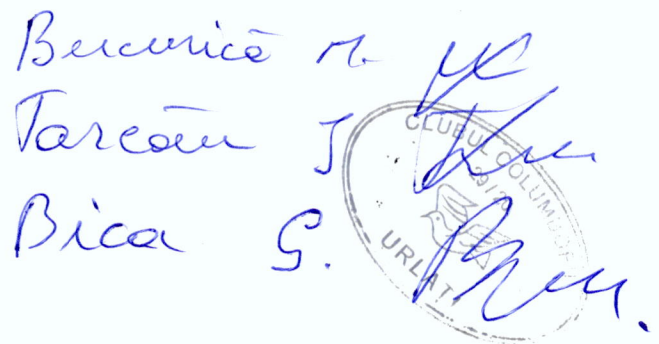 Bucurică M.
Tarcău J
Bica G.
CLUBUL COLUMBOFIL
URLAȚI